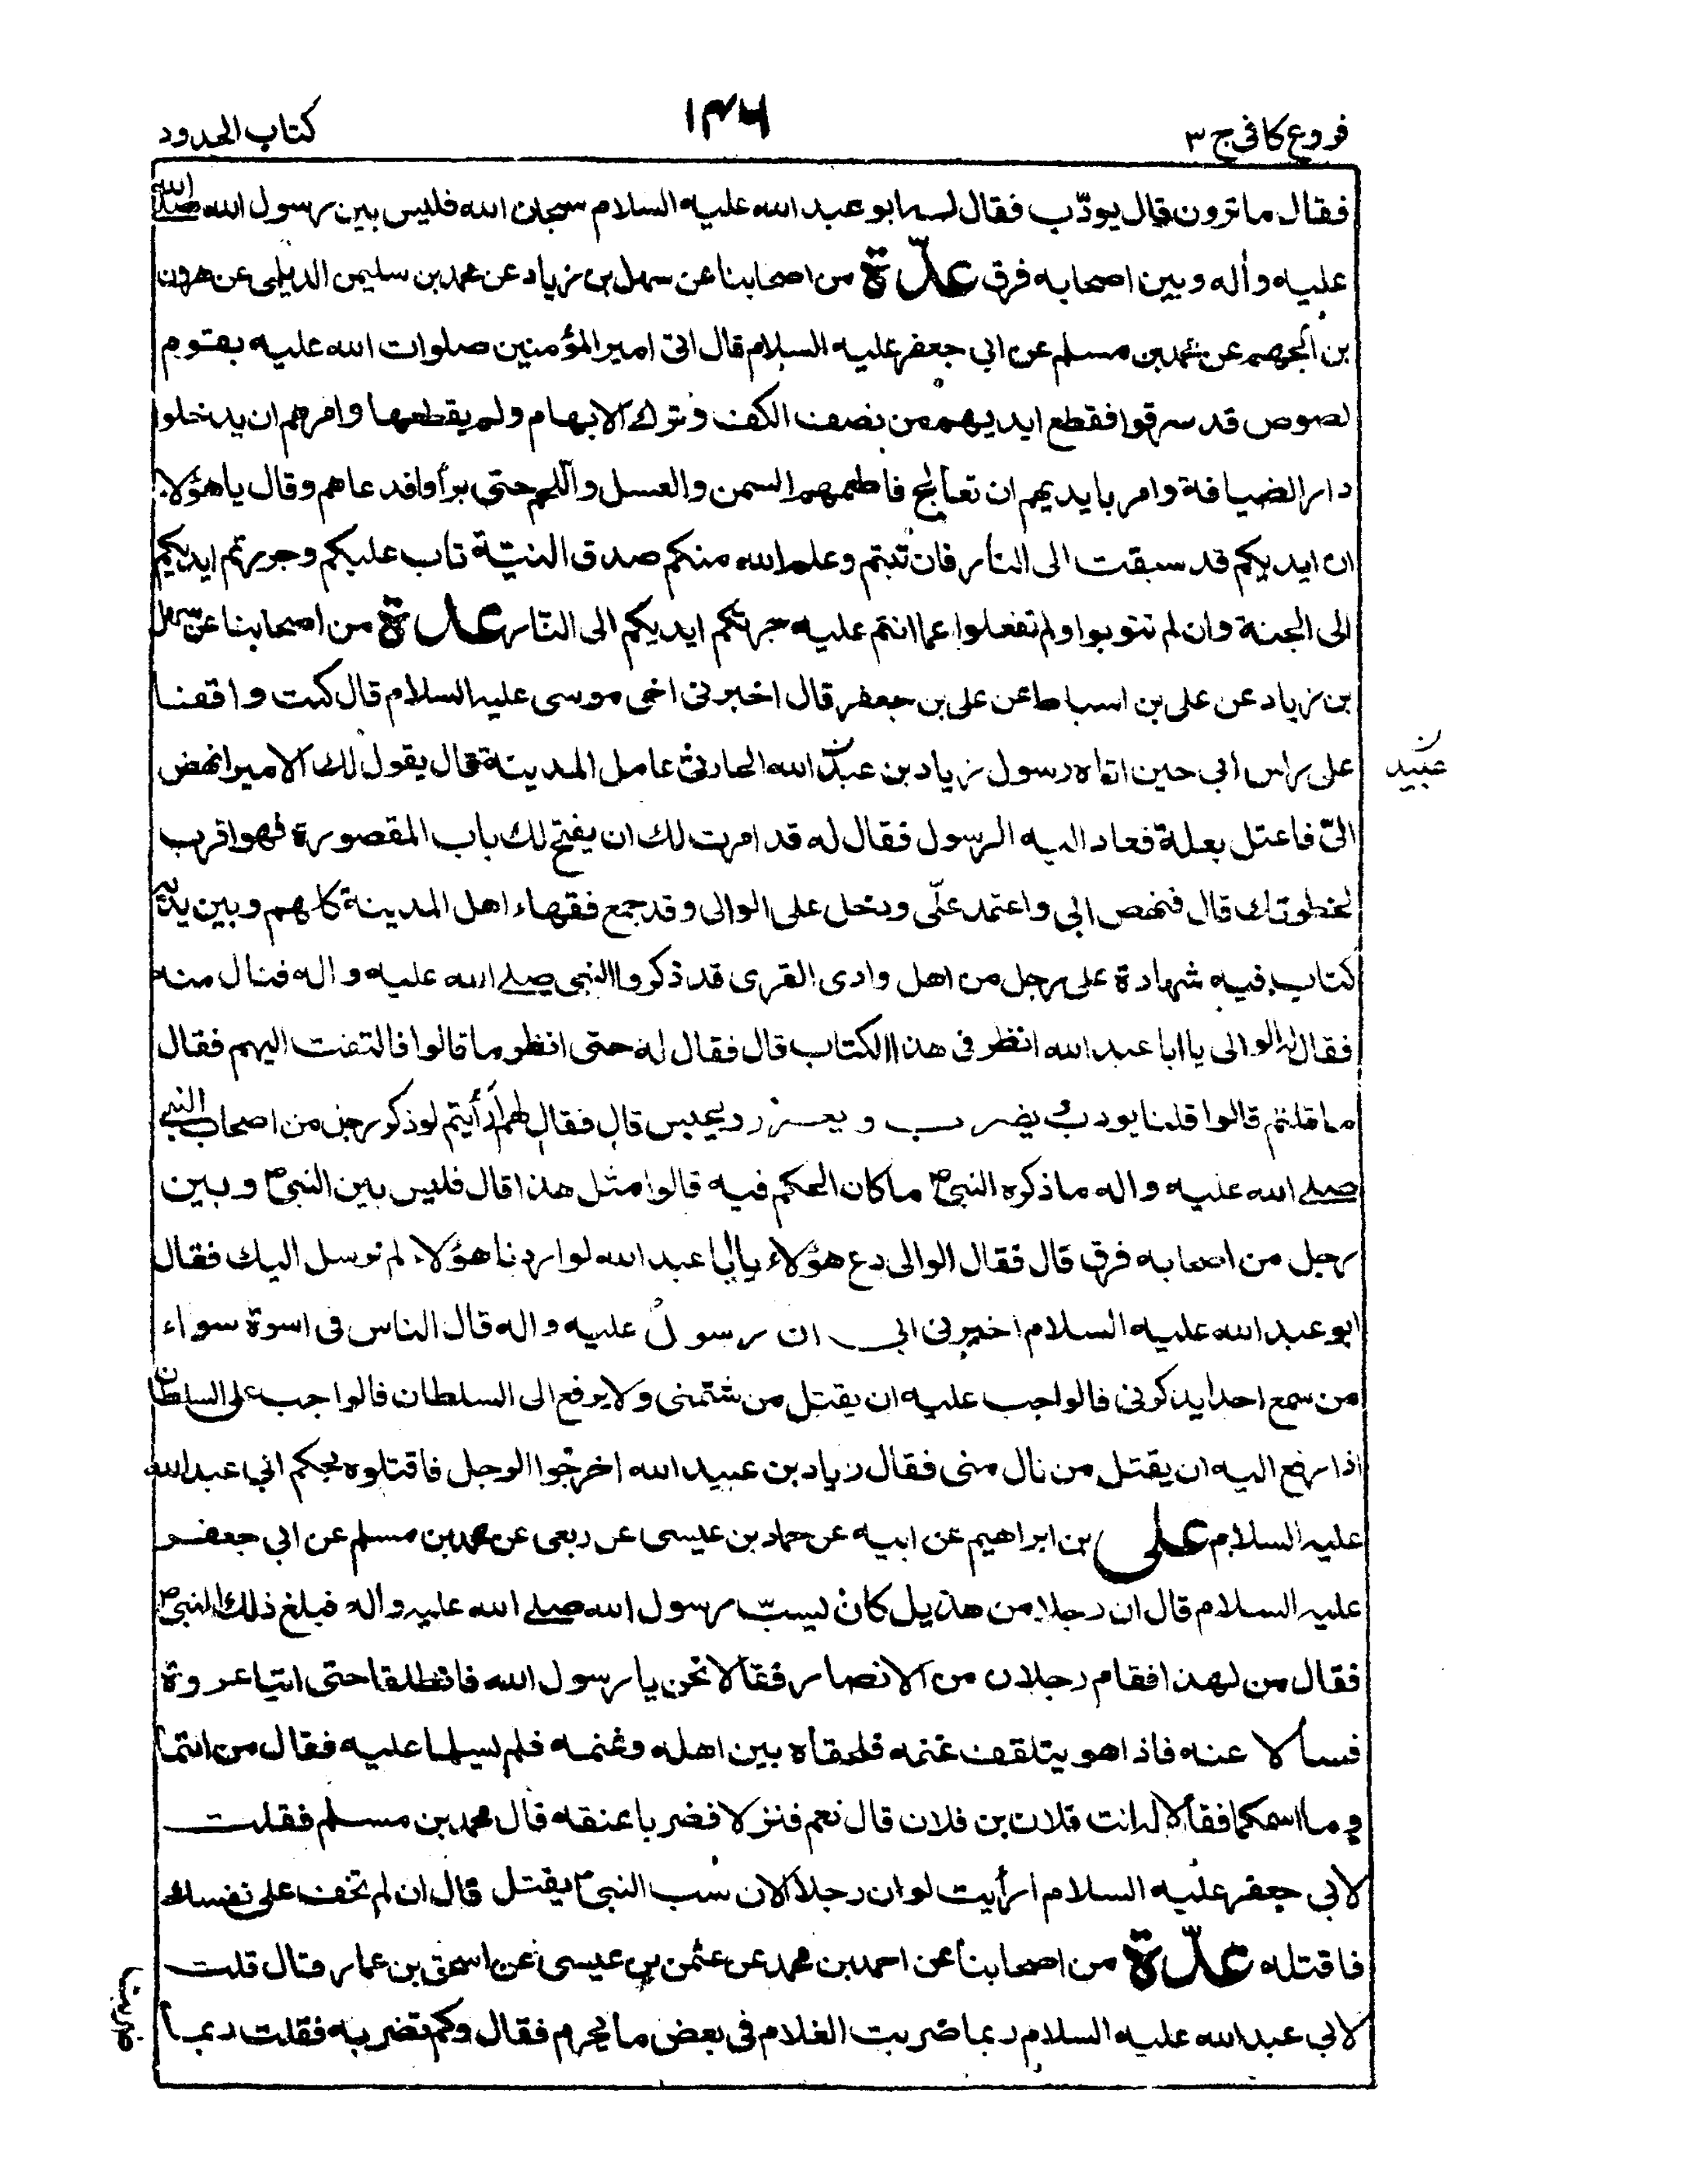 فروع كافى ج ٣
١٣٦
كتاب الحدود
فقال ما ترون قال يودّب فقال لهم ابو عبد الله عليه السلام سبحان الله فليس بين رسول الله صلى الله
عليه وآله وبين اصحابه فرق عدّة من اصحابنا عن سهل بن زياد عن محمد بن سليمن الديلمى عن هرون
بن الجهم عن محمد بن مسلم عن ابي جعفر عليه السلام قال اتى امير المؤمنين صلوات الله عليه بقوم
لصوص قد سرقوا فقطع ايديهم من نصف الكف وترك الابهام ولم يقطعها وامرهم ان يدخلوا
دار الضيافة وامر بايديهم ان تعالج فاطعمهم السمن والعسل واللحم حتى برأوا فدعاهم وقال يا هؤلاء
ان ايديكم قد سبقت الى النار فان تبتم وعلم الله منكم صدق النيّة تاب عليكم وجررتم ايديكم
الى الجنة وان لم تتوبوا ولم تفعلوا عما انتم عليه جرتكم ايديكم الى النّار عدة من اصحابنا عن سهل
بن زياد عن على بن اسباط عن على بن جعفر قال اخبرنى اخى موسى عليه السلام قال كنت واقفا
على راس ابى حين اتاه رسول زياد بن عبد الله الحارثى عامل المدينة قال يقول لك الامير انهض
عبيد ن
الىّ فاعتل بعلة فعاد اليه الرسول فقال له قد امرت لك ان يفتح لك باب المقصورة فهو اقرب
لخطوتك قال فنهض ابى واعتمد علّى ودخل على الوالى وقد جمع فقهاء اهل المدينة كلهم وبين يديه
كتاب فيه شهادة على رجل من اهل وادى القرى قد ذكروا النبى صلى الله عليه واله فنال منه
فقال له الوالى يا ابا عبد الله انظر فى هذا الكتاب قال فقال له حتى انظر ما قالوا فالتفت اليهم فقال
ما قلتم قالوا قلنا يودب ويضرب ويعزر ويحبس قال فقال لهم أرأيتم لو ذكر رجل من اصحاب النبي
صلى الله عليه واله ما ذكره النبىص ما كان الحكم فيه قالوا مثل هذا قال فليس بين النبىص وبين
رجل من اصحابه فرق قال فقال الوالى دع هؤلاء يا ابا عبد الله لو اردنا هؤلاء لم نرسل اليك فقال
ابو عبد الله عليه السلام اخبرنى ابى ان رسول عليه واله قال الناس فى اسوة سواء
من سمع احدا يذكرنى فالواجب عليه ان يقتل من شتمنى ولا يرفع الى السلطان فالواجب على السلطان
اذا رفع اليه ان يقتل من نال منى فقال زياد بن عبيد الله اخرجوا الرجل فاقتلوه بحكم ابي عبد الله
عليه السلام على بن ابراهيم عن ابيه عن حماد بن عيسى عن ربعى عن محمد بن مسلم عن ابي جعفر
عليه السلام قال ان رجلا من هذيل كان يسبّ رسول الله صلى الله عليه واله فبلغ ذلك النبىص
فقال من لهذا فقام رجلان من الانصار فقالا نحن يا رسول الله فانطلقا حتى اتيا عروة
فسألا عنه فاذا هو يتلقف غنمه فلحقاه بين اهله وغنمه فلم يسلما عليه فقال من انتما
وما اسمكما فقالا له انت فلان بن فلان قال نعم فنزلا فضربا عنقه قال محمد بن مسلم فقلت
لابي جعفر عليه السلام ارأيت لو ان رجلا الان سب النبىص ايقتل قال ان لم تخف على نفسك
فاقتله عدّة من اصحابنا عن احمد بن محمد عن عثمن بن عيسى عن اسحق بن عمار قال قلت
لابي عبد الله عليه السلام ربما ضربت الغلام فى بعض ما يجرم فقال وكم تضربه فقلت ربما
ضربته